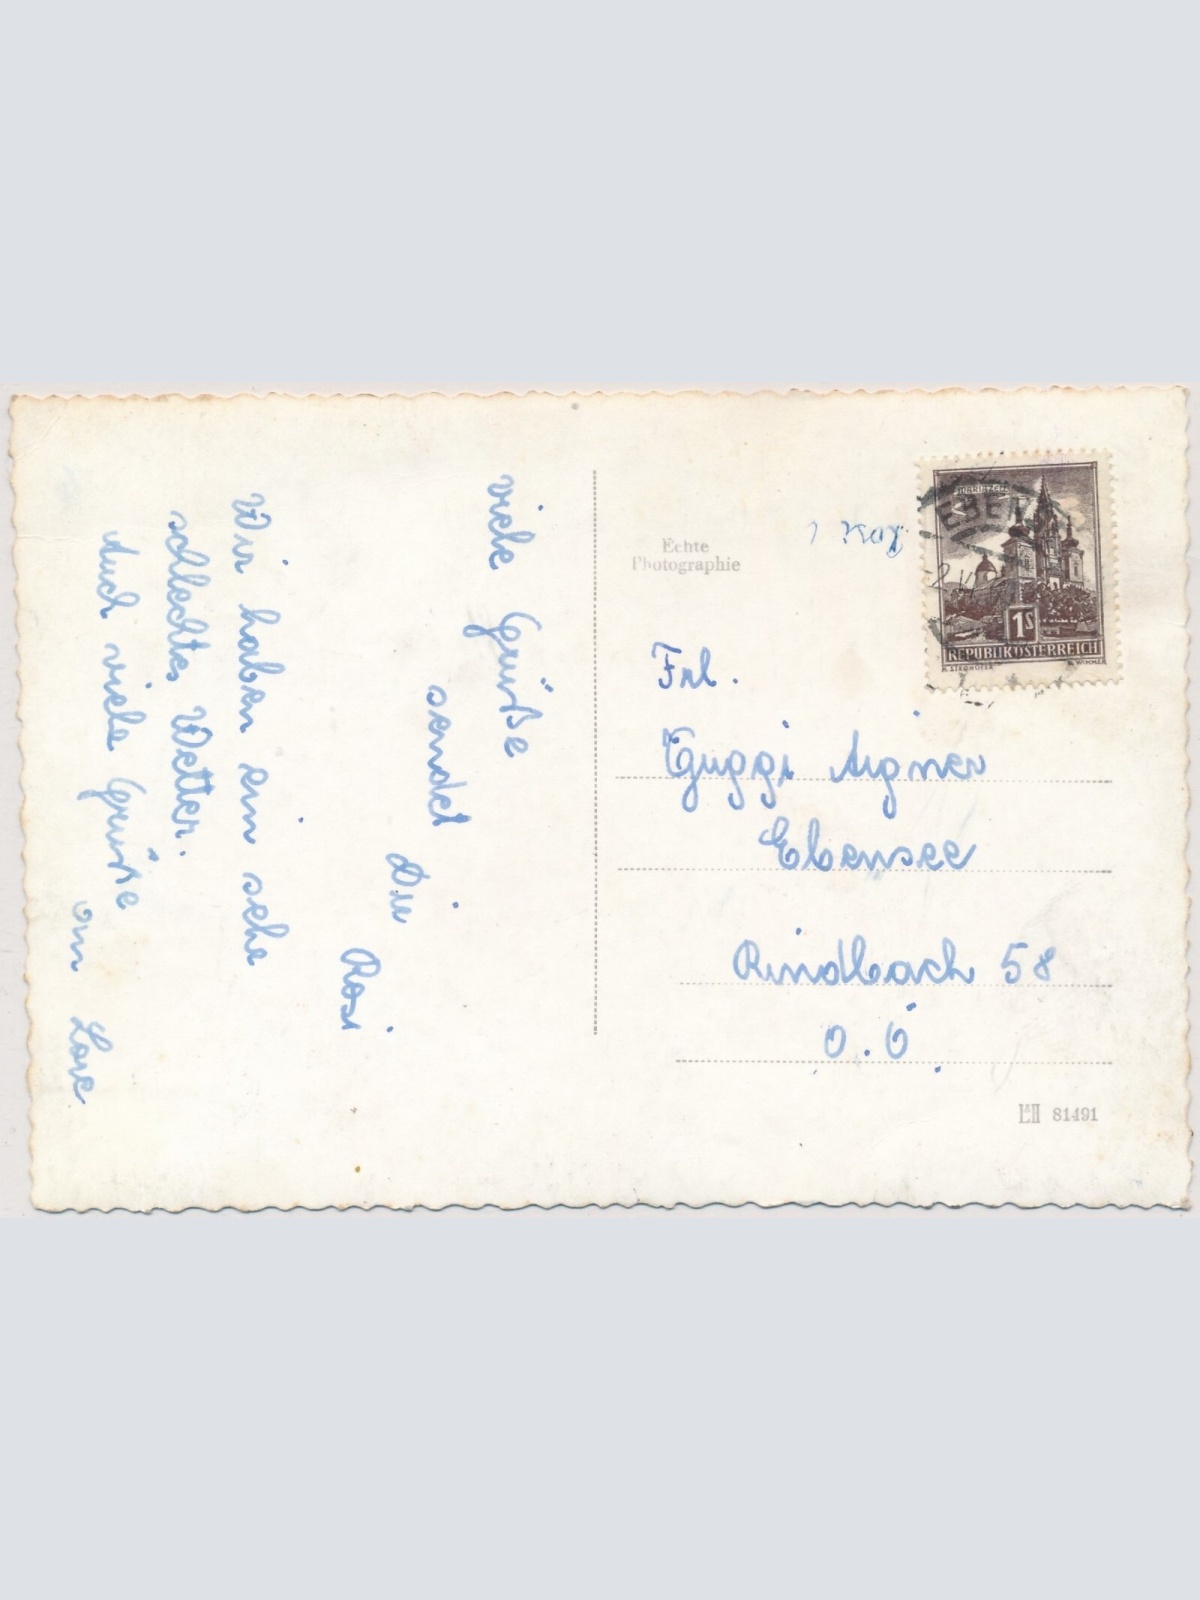 viele Grüße
sendet
Dir
Rosi
Wir haben ein sehr
schlechtes Wetter.
Auch viele Grüße
von Lore
Echte
Photographie
MARIAZELL
EBEN
1S
REPUBLIK ÖSTERREICH
Frl.
Guggi Aigner
Ebensee
Rindbach 58
O.Ö
81491